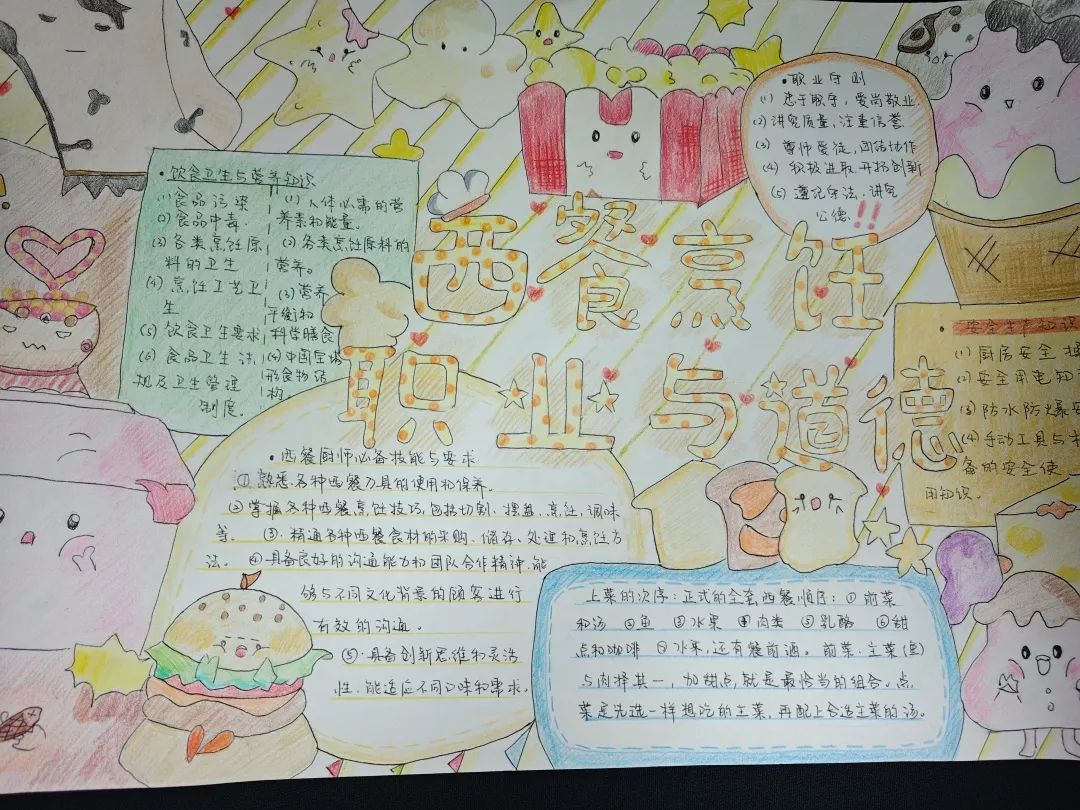 西餐烹饪
职业与道德
•饮食卫生与营养知识
(1)食品污染
()食品中毒.
(3)各类烹饪原
料的卫生
(4)烹饪工艺卫
生
(5)饮食卫生要求
(6)食品卫生法
规及卫生管理
制度。
(1)人体必需的营
养素和能量.
(2)各类烹饪原料的
营养。
(3)营养
平衡和
科学膳食
(4)中国宝塔
形食物结
构.
•职业守则
(1)忠于职守,爱岗敬业.
(2)讲究质量,注重信誉.
(3)尊师爱徒,团结协作
(4)积极进取,开拓创新
(5)遵纪守法,讲究
公德.!!
•安全生产知识
(1)厨房安全
(2)安全用电知
(3)防水防爆安
(4)手动工具与
备的安全使
用知识。
•西餐厨师必备技能与要求
①熟悉各种西餐刀具的使用和保养。
②掌握各种西餐烹饪技巧,包括切割、摆盘、烹饪、调味
等。 ③.精通各种西餐食材的采购、储存、处理和烹饪方
法。 ④具备良好的沟通能力和团队合作精神,能
够与不同文化背景的顾客进行
有效的沟通。
⑤.具备创新思维和灵活
性,能适应不同口味和需求。
上菜的次序:正式的全套西餐顺序:①前菜
和汤 ②鱼 ③水果 ④肉类 ⑤乳酪 ⑥甜
点和咖啡 ⑦水果,还有餐前酒。前菜.主菜(鱼)
与肉择其一,加甜点,就是最恰当的组合。点
菜是先选一样想吃的主菜,再配上合适主菜的汤。